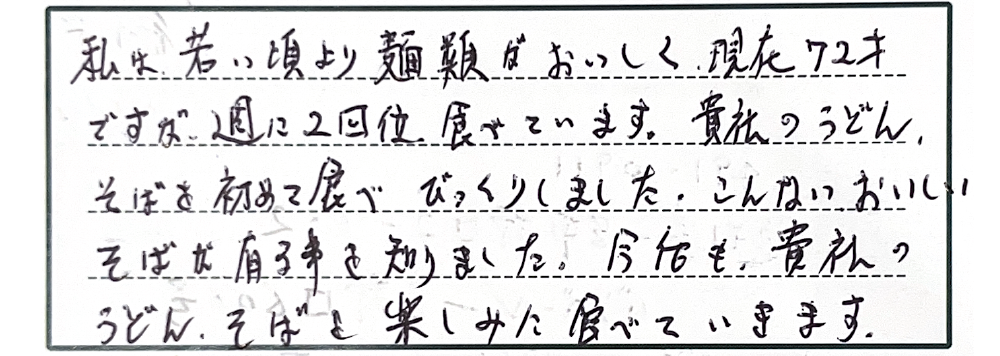 私は、若い頃より麺類がおいしく、現在72才
ですが、週に2回位、食べています。貴社のうどん、
そばを初めて食べ びっくりしました。こんなにおいしい
そばが有る事を知りました。今后も、貴社の
うどん、そばを楽しみに食べていきます。